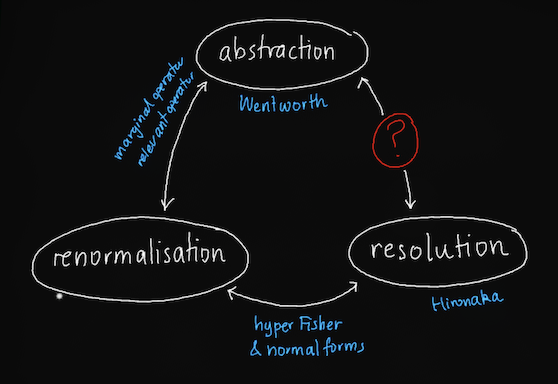 abstraction
Wentworth
marginal operator
relevant operator
?
renormalisation
resolution
Hironaka
hyper Fisher
& normal forms